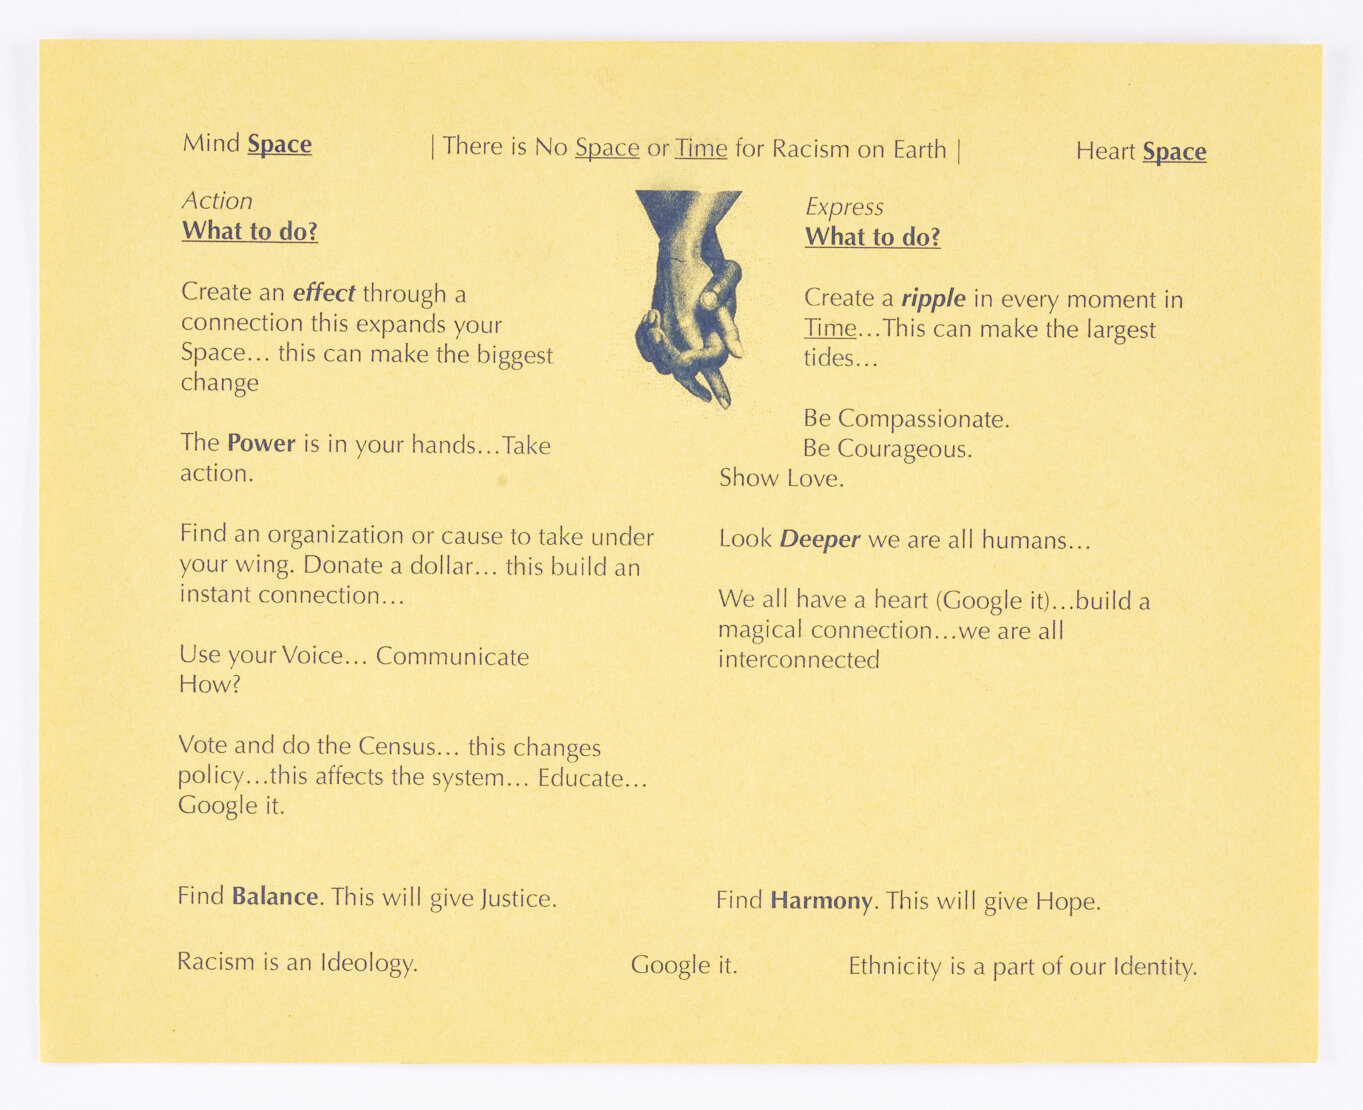 Mind Space
| There is No Space or Time for Racism on Earth |
Heart Space
Action
What to do?
Create an effect through a
connection this expands your
Space... this can make the biggest
change
The Power is in your hands...Take
action.
Find an organization or cause to take under
your wing. Donate a dollar... this build an
instant connection...
Use your Voice... Communicate
How?
Vote and do the Census... this changes
policy...this affects the system... Educate...
Google it.
Find Balance. This will give Justice.
Express
What to do?
Create a ripple in every moment in
Time...This can make the largest
tides...
Be Compassionate.
Be Courageous.
Show Love.
Look Deeper we are all humans...
We all have a heart (Google it)...build a
magical connection...we are all
interconnected
Find Harmony. This will give Hope.
Racism is an Ideology.
Google it.
Ethnicity is a part of our Identity.